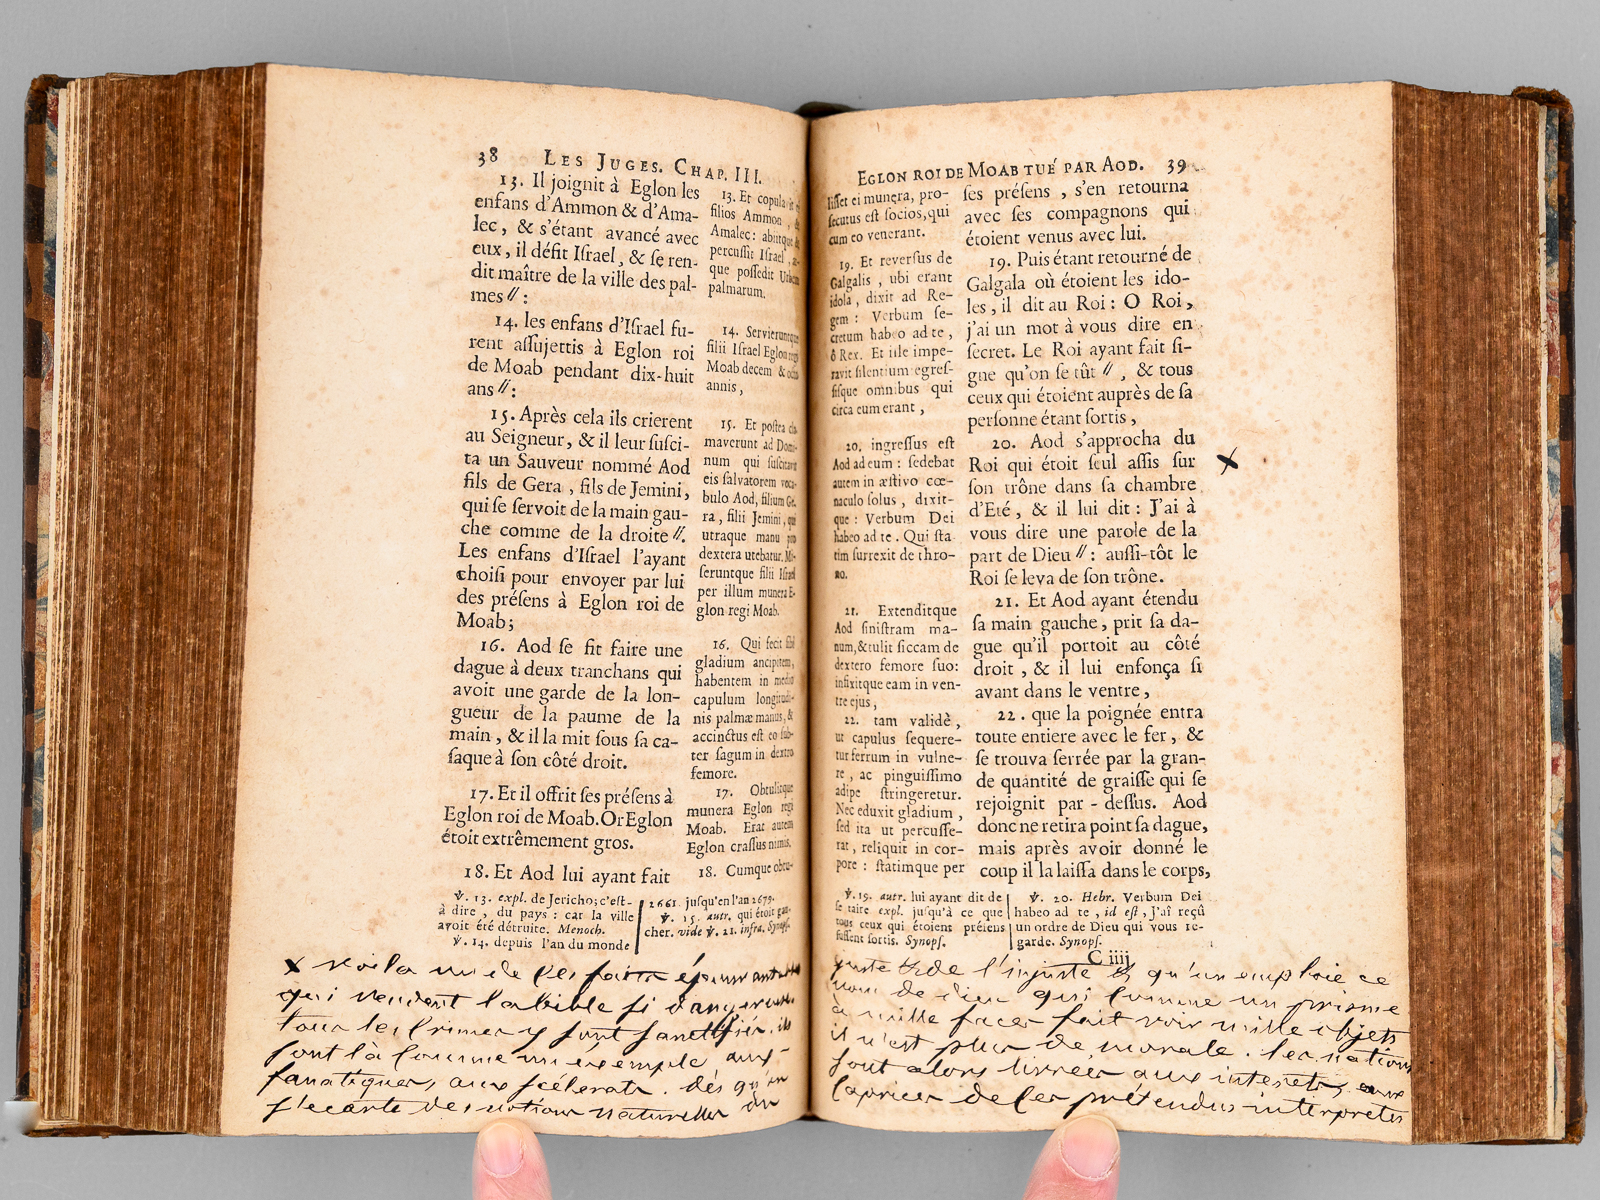 38 LES JUGES. CHAP. III.
13. Il joignit à Eglon les
enfans d'Ammon & d'Ama-
lec, & s'étant avancé avec
eux, il défit Iſrael, & ſe ren-
dit maître de la ville des pal-
mes //:
14. les enfans d'Iſrael fu-
rent aſſujettis à Eglon roi
de Moab pendant dix-huit
ans //:
15. Après cela ils crierent
au Seigneur, & il leur ſuſci-
ta un Sauveur nommé Aod
fils de Gera, fils de Jemini,
qui ſe ſervoit de la main gau-
che comme de la droite //.
Les enfans d'Iſrael l'ayant
choiſi pour envoyer par lui
des préſens à Eglon roi de
Moab;
16. Aod ſe fit faire une
dague à deux tranchans qui
avoit une garde de la lon-
gueur de la paume de la
main, & il la mit ſous ſa ca-
ſaque à ſon côté droit.
17. Et il offrit ſes préſens à
Eglon roi de Moab. Or Eglon
étoit extrêmement gros.
18. Et Aod lui ayant fait
13. Et copulavit
filios Ammon, &
Amalec: abiitque &
percuſſit Iſrael, at-
que poſſedit Urbem
palmarum.
14. Servieruntque
filii Iſrael Eglon regi
Moab decem & octo
annis,
15. Et poſtea cla-
maverunt ad Domi-
num qui ſuſcitavit
eis ſalvatorem voca-
bulo Aod, filium Ge-
ra, filii Jemini, qui
utraque manu pro
dextera utebatur. Mi-
ſeruntque filii Iſrael
per illum munera E-
glon regi Moab.
16. Qui fecit ſibi
gladium ancipitem,
habentem in medio
capulum longitudi-
nis palmæ manus, &
accinctus eſt eo ſub-
ter ſagum in dextro
femore.
17. Obtulitque
munera Eglon regi
Moab. Erat autem
Eglon craſſus nimis.
18. Cumque obtu-
℣. 13. expl. de Jericho; c'eſt-
à dire, du pays: car la ville
avoit été détruite. Menoch.
℣. 14. depuis l'an du monde
2661. juſqu'en l'an 2679.
℣. 15. autr. qui étoit gau-
cher. vide ℣. 21. infra. Synopſ.
x voila un de ces faits épouvantables
qui rendent la bible si dangereuse
tous les crimes y sont sanctifiés. ils
sont là comme un exemple aux
fanatiques, aux scélerats. dès qu'on
s'ecarte des notions naturelles du
EGLON ROI DE MOAB TUÉ PAR AOD. 39
liſſet ei munera, pro-
ſecutus eſt ſocios, qui
cum eo venerant.
19. Et reverſus de
Galgalis, ubi erant
idola, dixit ad Re-
gem: Verbum ſe-
cretum habeo ad te,
ô Rex. Et ille impe-
ravit ſilentium egreſ-
ſiſque omnibus qui
circa eum erant,
20. ingreſſus eſt
Aod ad eum: ſedebat
autem in æſtivo cœ-
naculo ſolus, dixit-
que: Verbum Dei
habeo ad te. Qui ſta-
tim ſurrexit de thro-
no.
21. Extenditque
Aod ſiniſtram ma-
num, & tulit ſiccam de
dextero femore ſuo:
infixitque eam in ven-
tre ejus,
22. tam validè,
ut capulus ſequere-
tur ferrum in vulne-
re, ac pinguiſſimo
adipe ſtringeretur.
Nec eduxit gladium,
ſed ita ut percuſſe-
rat, reliquit in cor-
pore: ſtatimque per
ſes préſens, s'en retourna
avec ſes compagnons qui
étoient venus avec lui.
19. Puis étant retourné de
Galgala où étoient les ido-
les, il dit au Roi: O Roi,
j'ai un mot à vous dire en
ſecret. Le Roi ayant fait ſi-
gne qu'on ſe tût //, & tous
ceux qui étoient auprès de ſa
perſonne étant ſortis,
20. Aod s'approcha du
Roi qui étoit ſeul aſſis ſur
ſon trône dans ſa chambre
d'Eté, & il lui dit: J'ai à
vous dire une parole de la
part de Dieu //: auſſi-tôt le
Roi ſe leva de ſon trône.
21. Et Aod ayant étendu
ſa main gauche, prit ſa da-
gue qu'il portoit au côté
droit, & il lui enfonça ſi
avant dans le ventre,
22. que la poignée entra
toute entiere avec le fer, &
ſe trouva ſerrée par la gran-
de quantité de graiſſe qui ſe
rejoignit par-deſſus. Aod
donc ne retira point ſa dague,
mais après avoir donné le
coup il la laiſſa dans le corps,
x
℣. 19. autr. lui ayant dit de
ſe taire expl. juſqu'à ce que
tous ceux qui étoient préſens
fuſſent ſortis. Synopſ.
℣. 20. Hebr. Verbum Dei
habeo ad te, id eſt, J'aî reçû
un ordre de Dieu qui vous re-
garde. Synopſ.
C iiij
juste & de l'injuste & qu'on emploie ce
nom de dieu qui comme un prisme
à mille faces fait voir mille objets
il n'est plus de morale. les nations
sont alors livrées aux interets, aux
caprices de ces prétendus interpretes